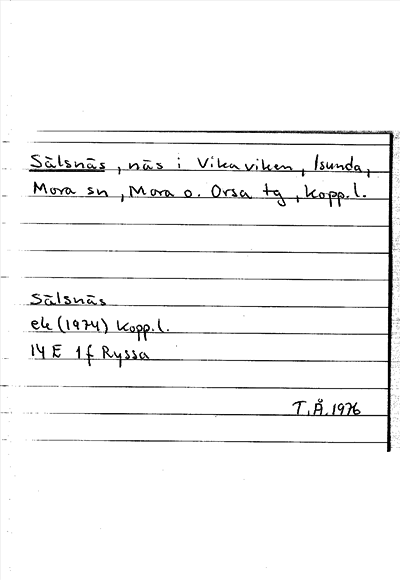 Sälsnäs, näs i Vikaviken, Isunda,
Mora sn, Mora o. Orsa tg, Kopp.l.
Sälsnäs
ek (1974) Kopp.l.
14 E 1f Ryssa
T.Å. 1976